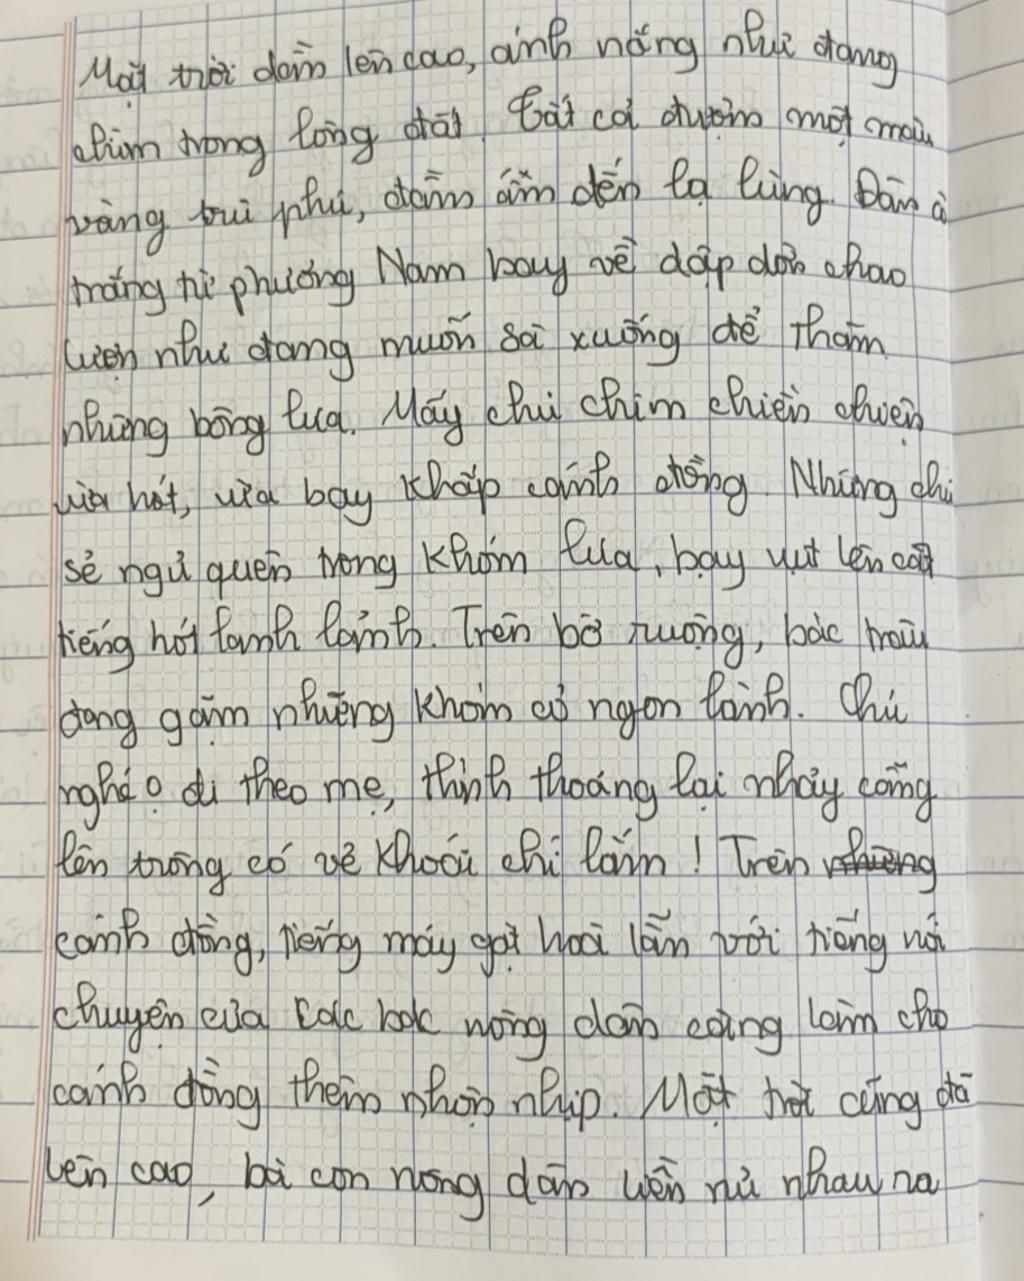 Mặt trời dần lên cao, ánh nắng như đang
chìm trong lòng đất. Tất cả đượm một màu
vàng trù phú, đầm ấm đến lạ lùng. Đàn cò
trắng từ phương Nam bay về dập dờn chao
lượn như đang muốn sà xuống để thăm
những bông lúa. Mấy chú chim chiền chiện
vừa hót, vừa bay khắp cánh đồng. Những chú
sẻ ngủ quên trong khóm lúa, bay vút lên cất
tiếng hót lanh lảnh. Trên bờ ruộng, bác trâu
đang gặm những khóm cỏ ngon lành. Chú
nghé o đi theo mẹ, thỉnh thoảng lại nhảy cẫng
lên trông có vẻ khoái chí lắm! Trên những
cánh đồng, tiếng máy gặt hoà lẫn với tiếng nói
chuyện của các bác nông dân càng làm cho
cánh đồng thêm nhộn nhịp. Mặt trời cũng đã
lên cao, bà con nông dân liền rủ nhau ra